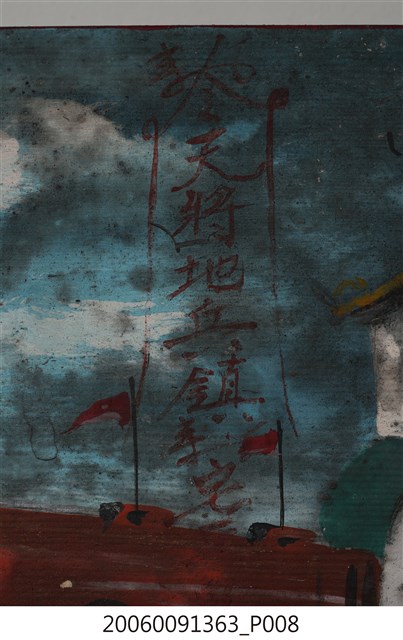 天將地兵鎮李宅
20060091363_P008